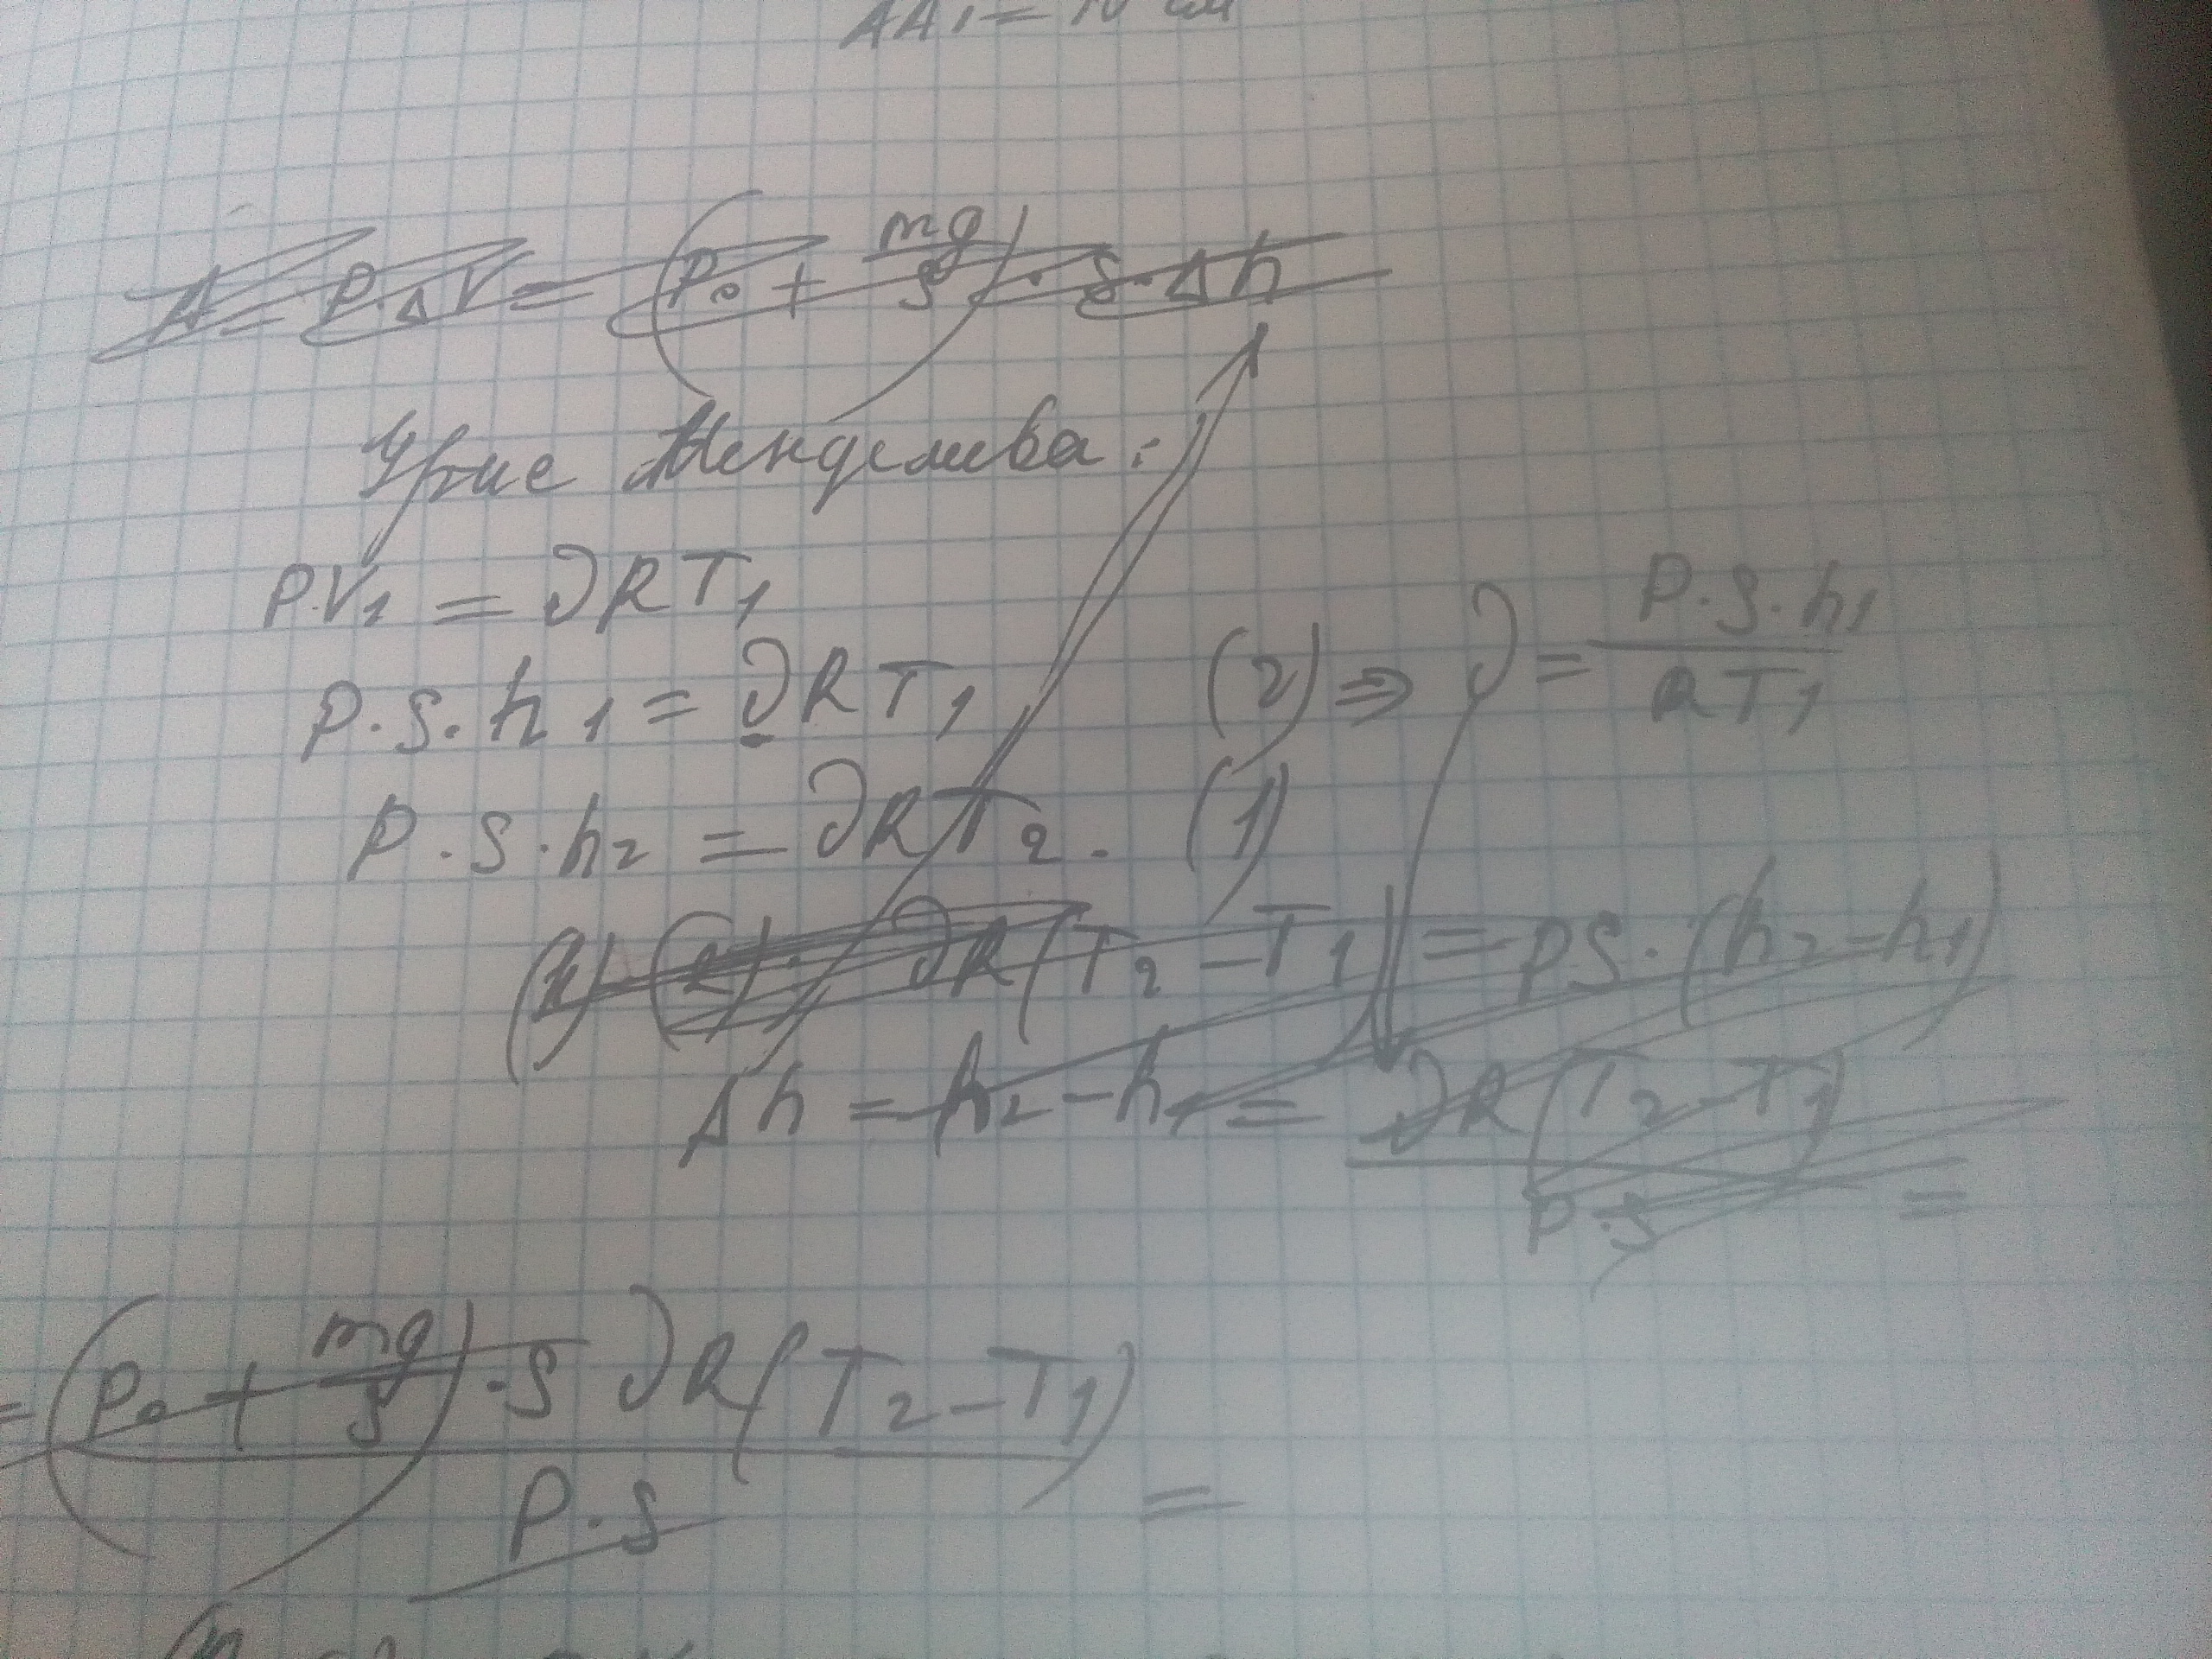 AA₁ = 10 см
A = P·ΔV = (P₀ + mg/S)·S·Δh
Ур-ие Менделеева:
P·V₁ = νRT₁
P·S·h₁ = νRT₁ (2) ⇒ ν = P·S·h₁/RT₁
P·S·h₂ = νRT₂. (1)
(1)-(2): νR(T₂-T₁) = PS·(h₂-h₁)
Δh = h₂-h₁ = νR(T₂-T₁)/P·S =
= (P₀ + mg/S)·S νR(T₂-T₁)/P·S =